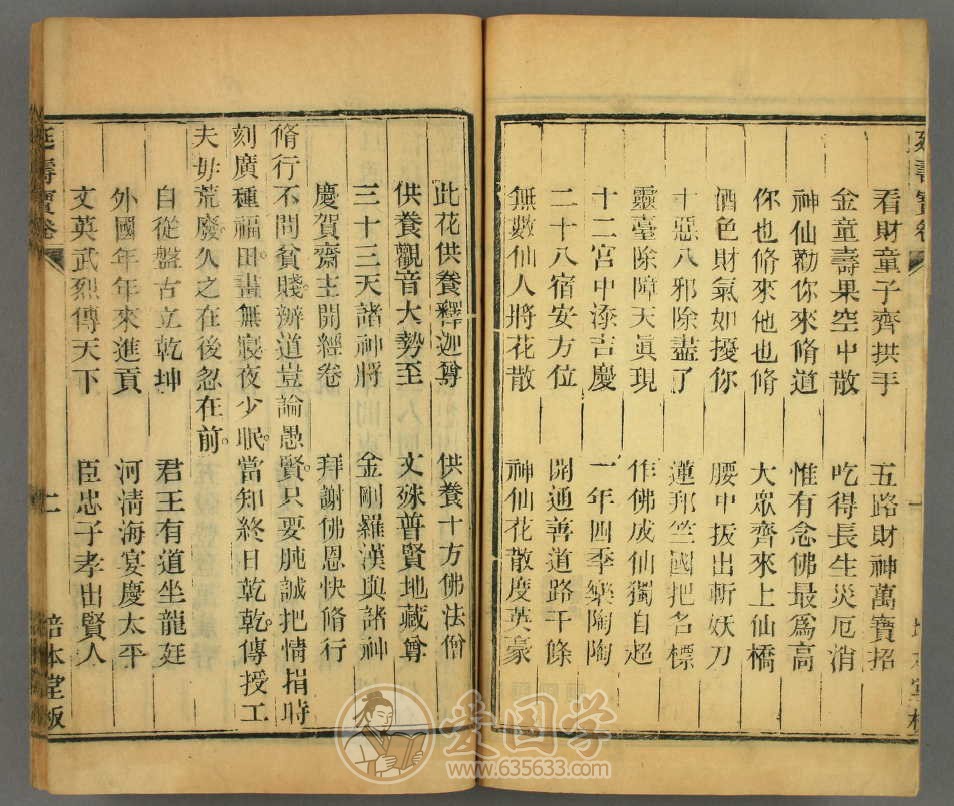 看財童子齊拱手 五路財神萬寶招
金童壽果空中散 吃得長生災厄消
神仙勸你來脩道 惟有念佛最爲高
你也脩來他也脩 大眾齊來上仙橋
酒色財氣如擾你 腰中拔出斬妖刀
十惡八邪除盡了 蓮邦竺國把名標
靈臺除障天眞現 作佛成仙獨自超
十二宮中添吉慶 一年四季樂陶陶
二十八宿安方位 開通善道路千條
無數仙人將花散 神仙花散度英豪
此花供養釋迦尊 供養十方佛法僧
供養觀音大勢至 文殊普賢地藏尊
三十三天諸神將 金剛羅漢與諸神
慶賀齋主開經卷 拜謝佛恩快脩行
脩行不問貧賤辦道豈論愚賢只要肫誠把情捐時
刻廣種福田晝無寢夜少眠當知終日乾乾傳授工
夫毋荒廢久之在後忽在前
自從盤古立乾坤 君王有道坐龍廷
外國年年來進貢 河清海宴慶太平
文英武烈傳天下 臣忠子孝出賢人
延壽寶卷 二 培本堂板
爱国学
www.635633.com